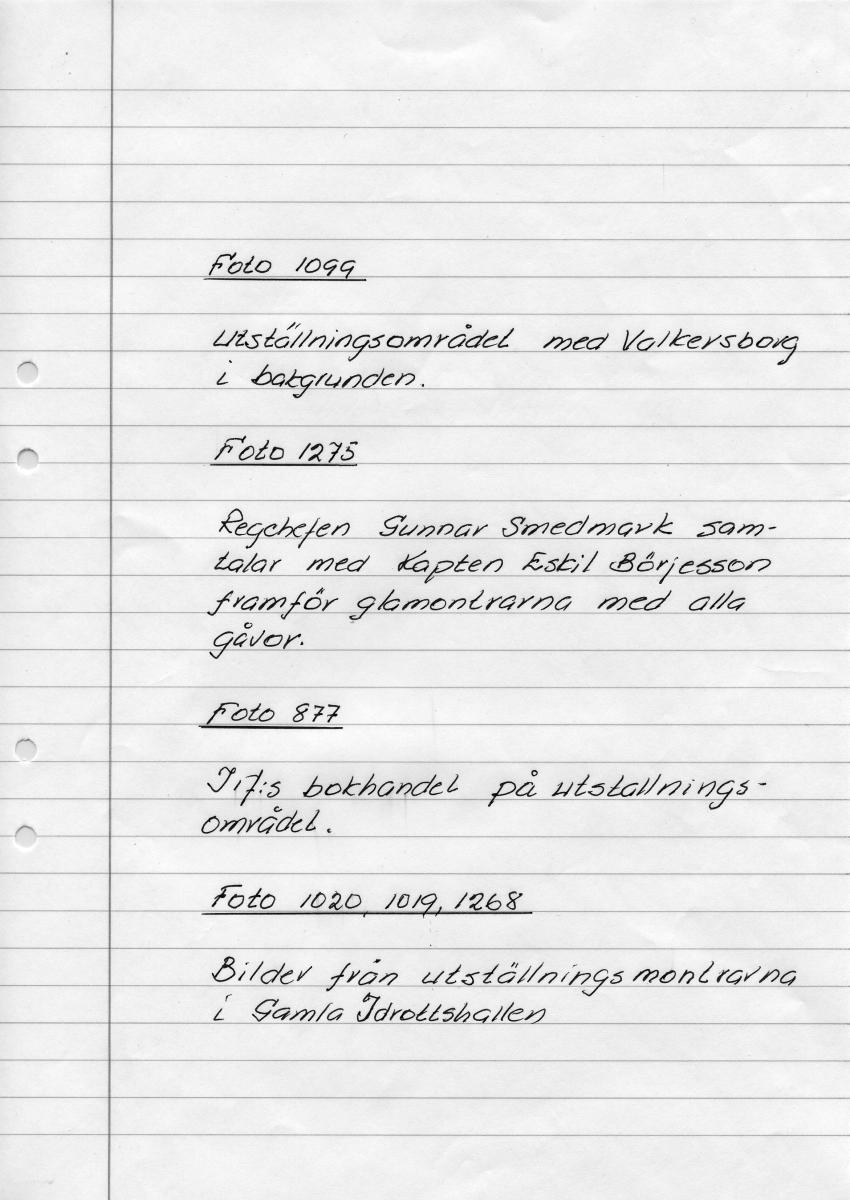 Foto 1099
Utställningsområdet med Valkersborg
i bakgrunden.
Foto 1275
Regchefen Gunnar Smedmark sam-
talar med Kapten Eskil Börjesson
framför glamontrarna med alla
gåvor.
Foto 877
I17:s bokhandel på utstallnings-
området.
Foto 1020, 1019, 1268
Bilder från utställningsmontrarna
i Gamla Idrottshallen